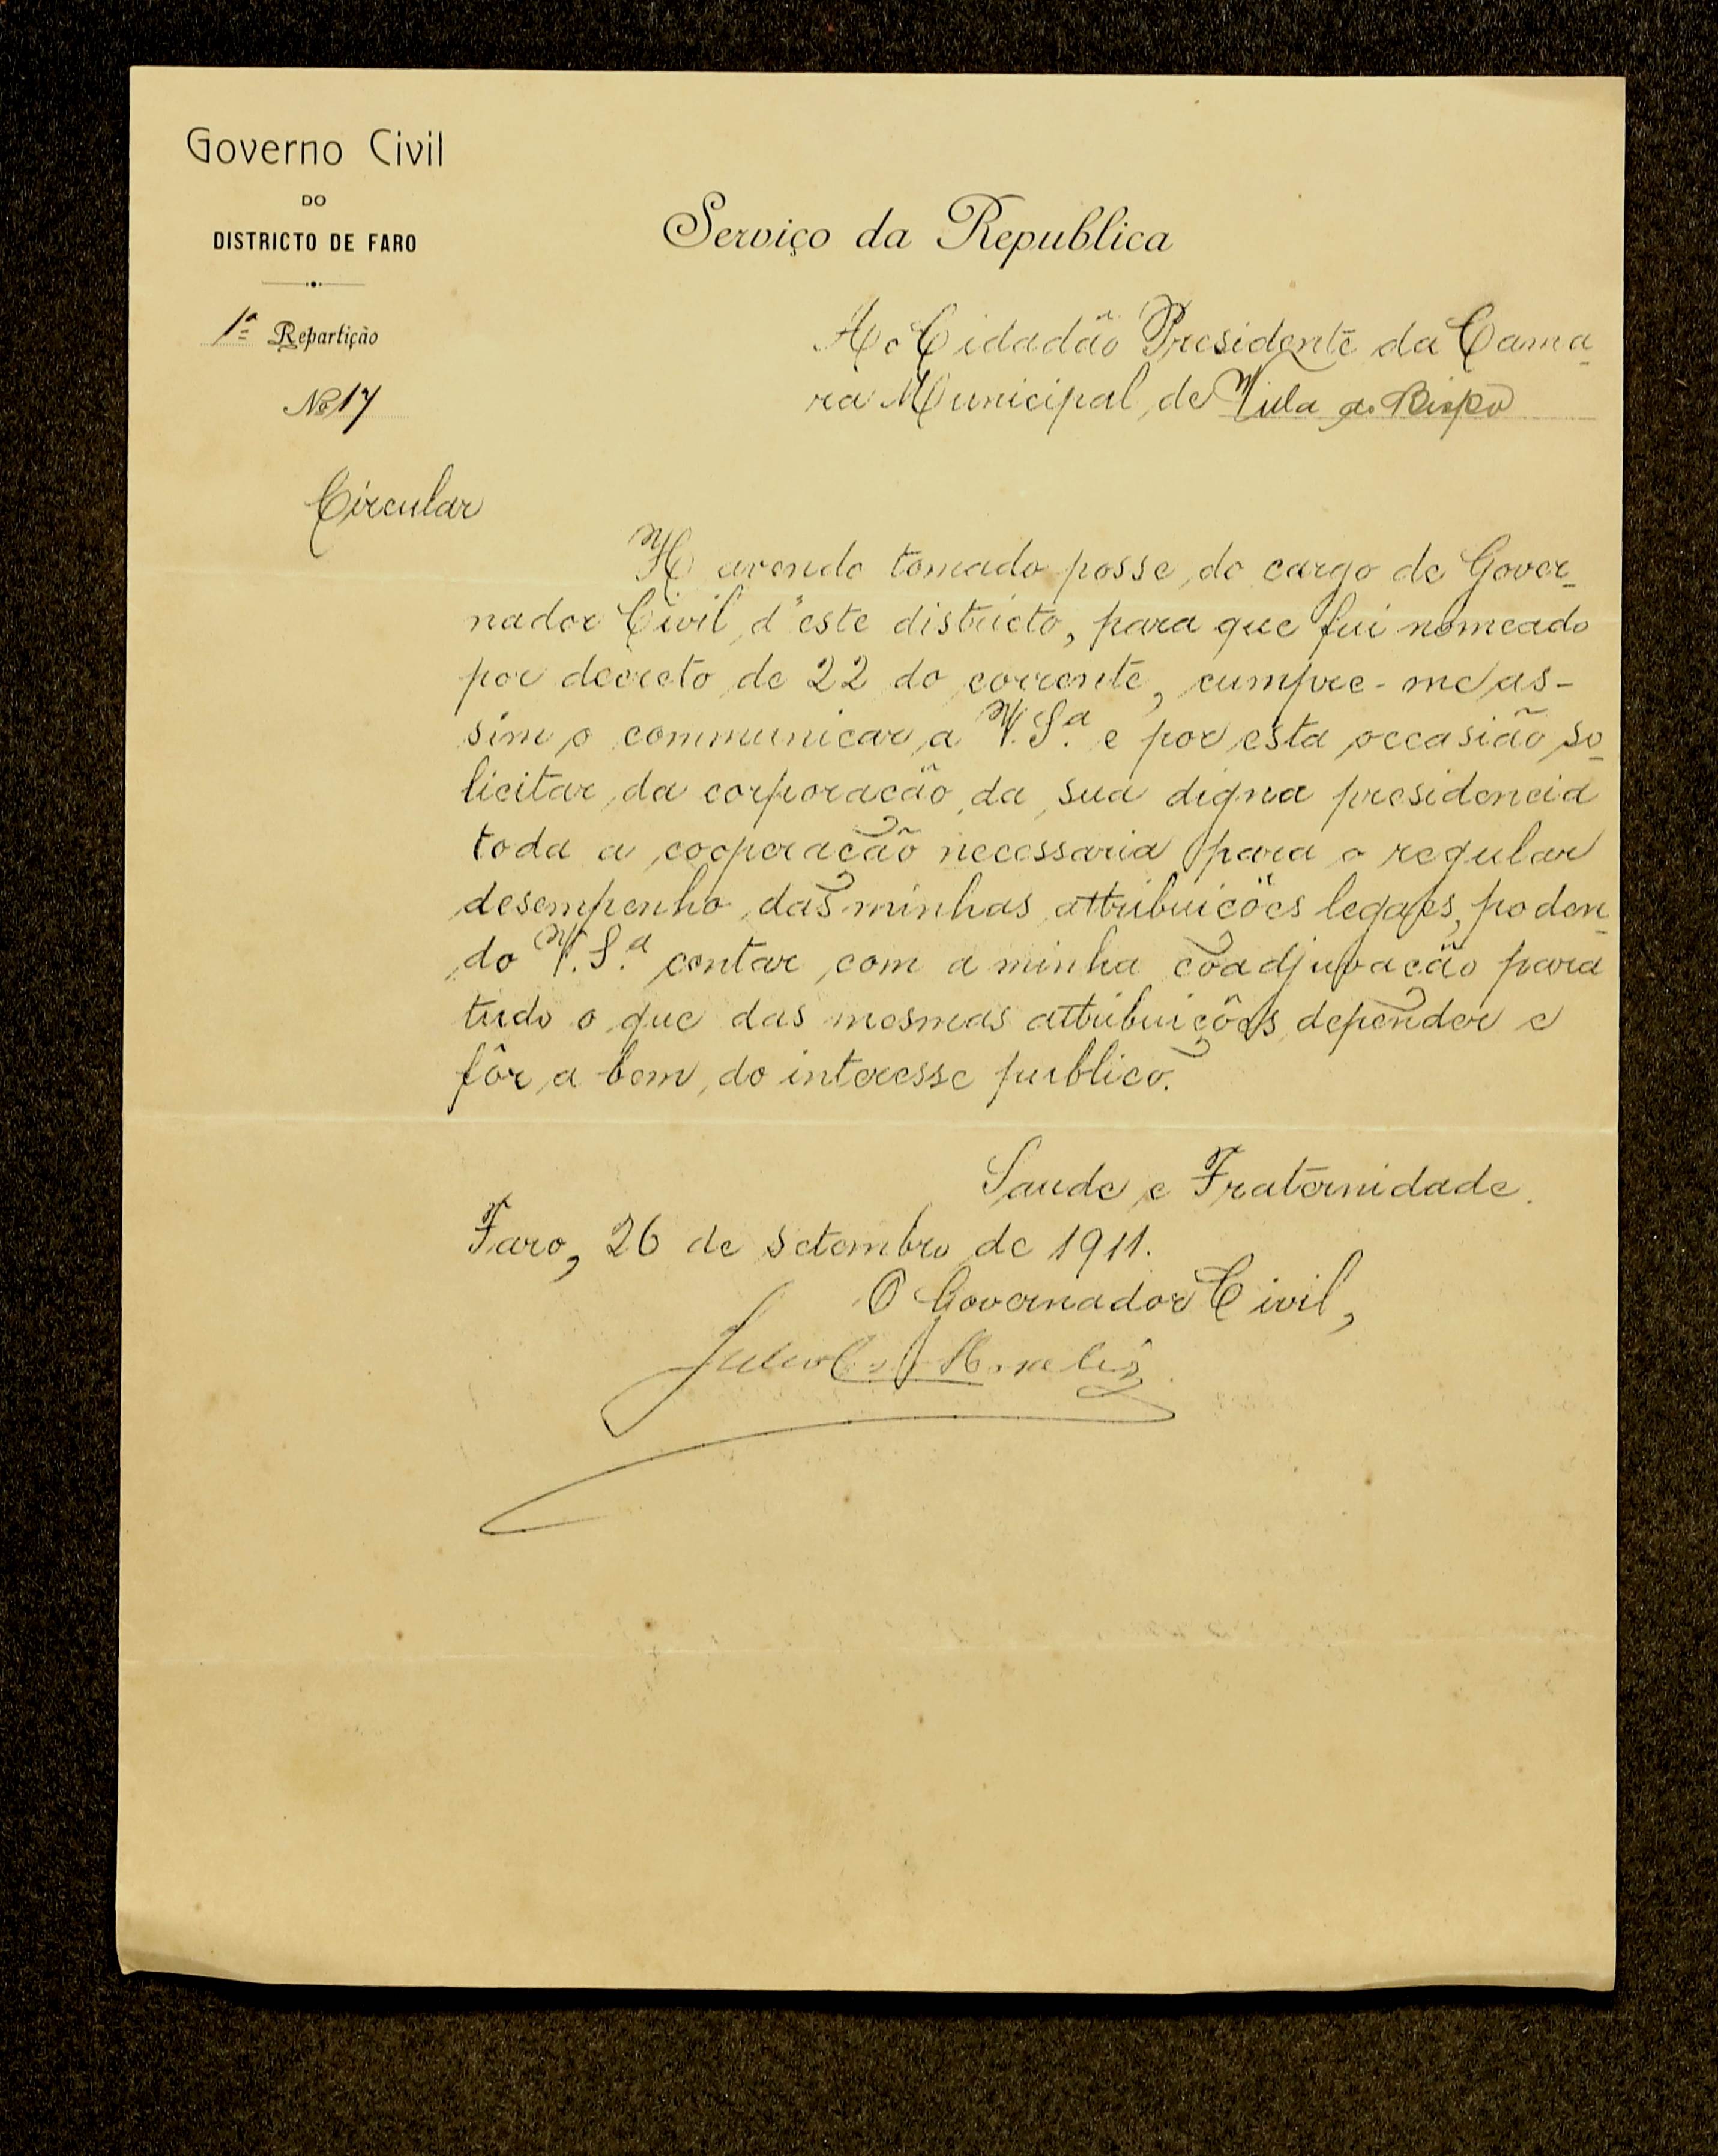 Governo Civil
DO
DISTRICTO DE FARO
1ª Repartição
Nº 17
Circular
Serviço da Republica
Ao Cidadão Presidente da Cama-
ra Municipal de Vila do Bispo
Havendo tomado posse do cargo de Gover-
nador Civil d'este districto, para que fui nomeado
por decreto de 22 do corrente, cumpre-me as-
sim o communicar a V. S.ª e por esta occasião so-
licitar da corporação da sua digna presidencia
toda a cooperação necessaria para o regular
desempenho das minhas attribuições legaes, poden-
do V. S.ª contar com a minha coadjuvação para
tudo o que das mesmas attribuições depender e
fôr a bem do interesse publico.
Saude e Fraternidade.
Faro, 26 de setembro de 1911.
O Governador Civil,